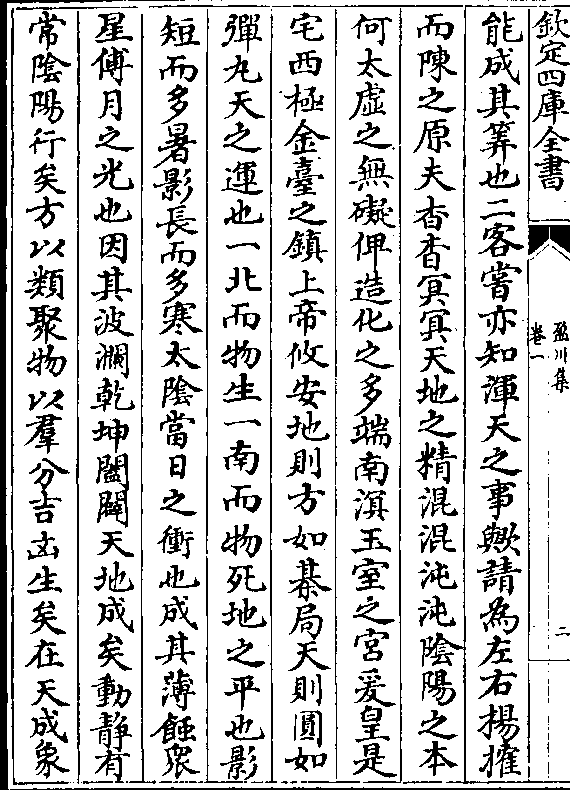 欽定四庫全書
盈川集
卷一
二
能成其筭也二客嘗亦知渾天之事歟請為左右揚搉
而陳之原夫杳杳冥冥天地之精混混沌沌陰陽之本
何太虛之無礙俾造化之多端南溟玉室之宮爰皇是
宅西極金臺之鎮上帝攸安地則方如棊局天則圓如
彈丸天之運也一北而物生一南而物死地之平也影
短而多暑影長而多寒太陰當日之衝也成其薄蝕衆
星傅月之光也因其波瀾乾坤闔闢天地成矣動靜有
常陰陽行矣方以類聚物以羣分吉凶生矣在天成象